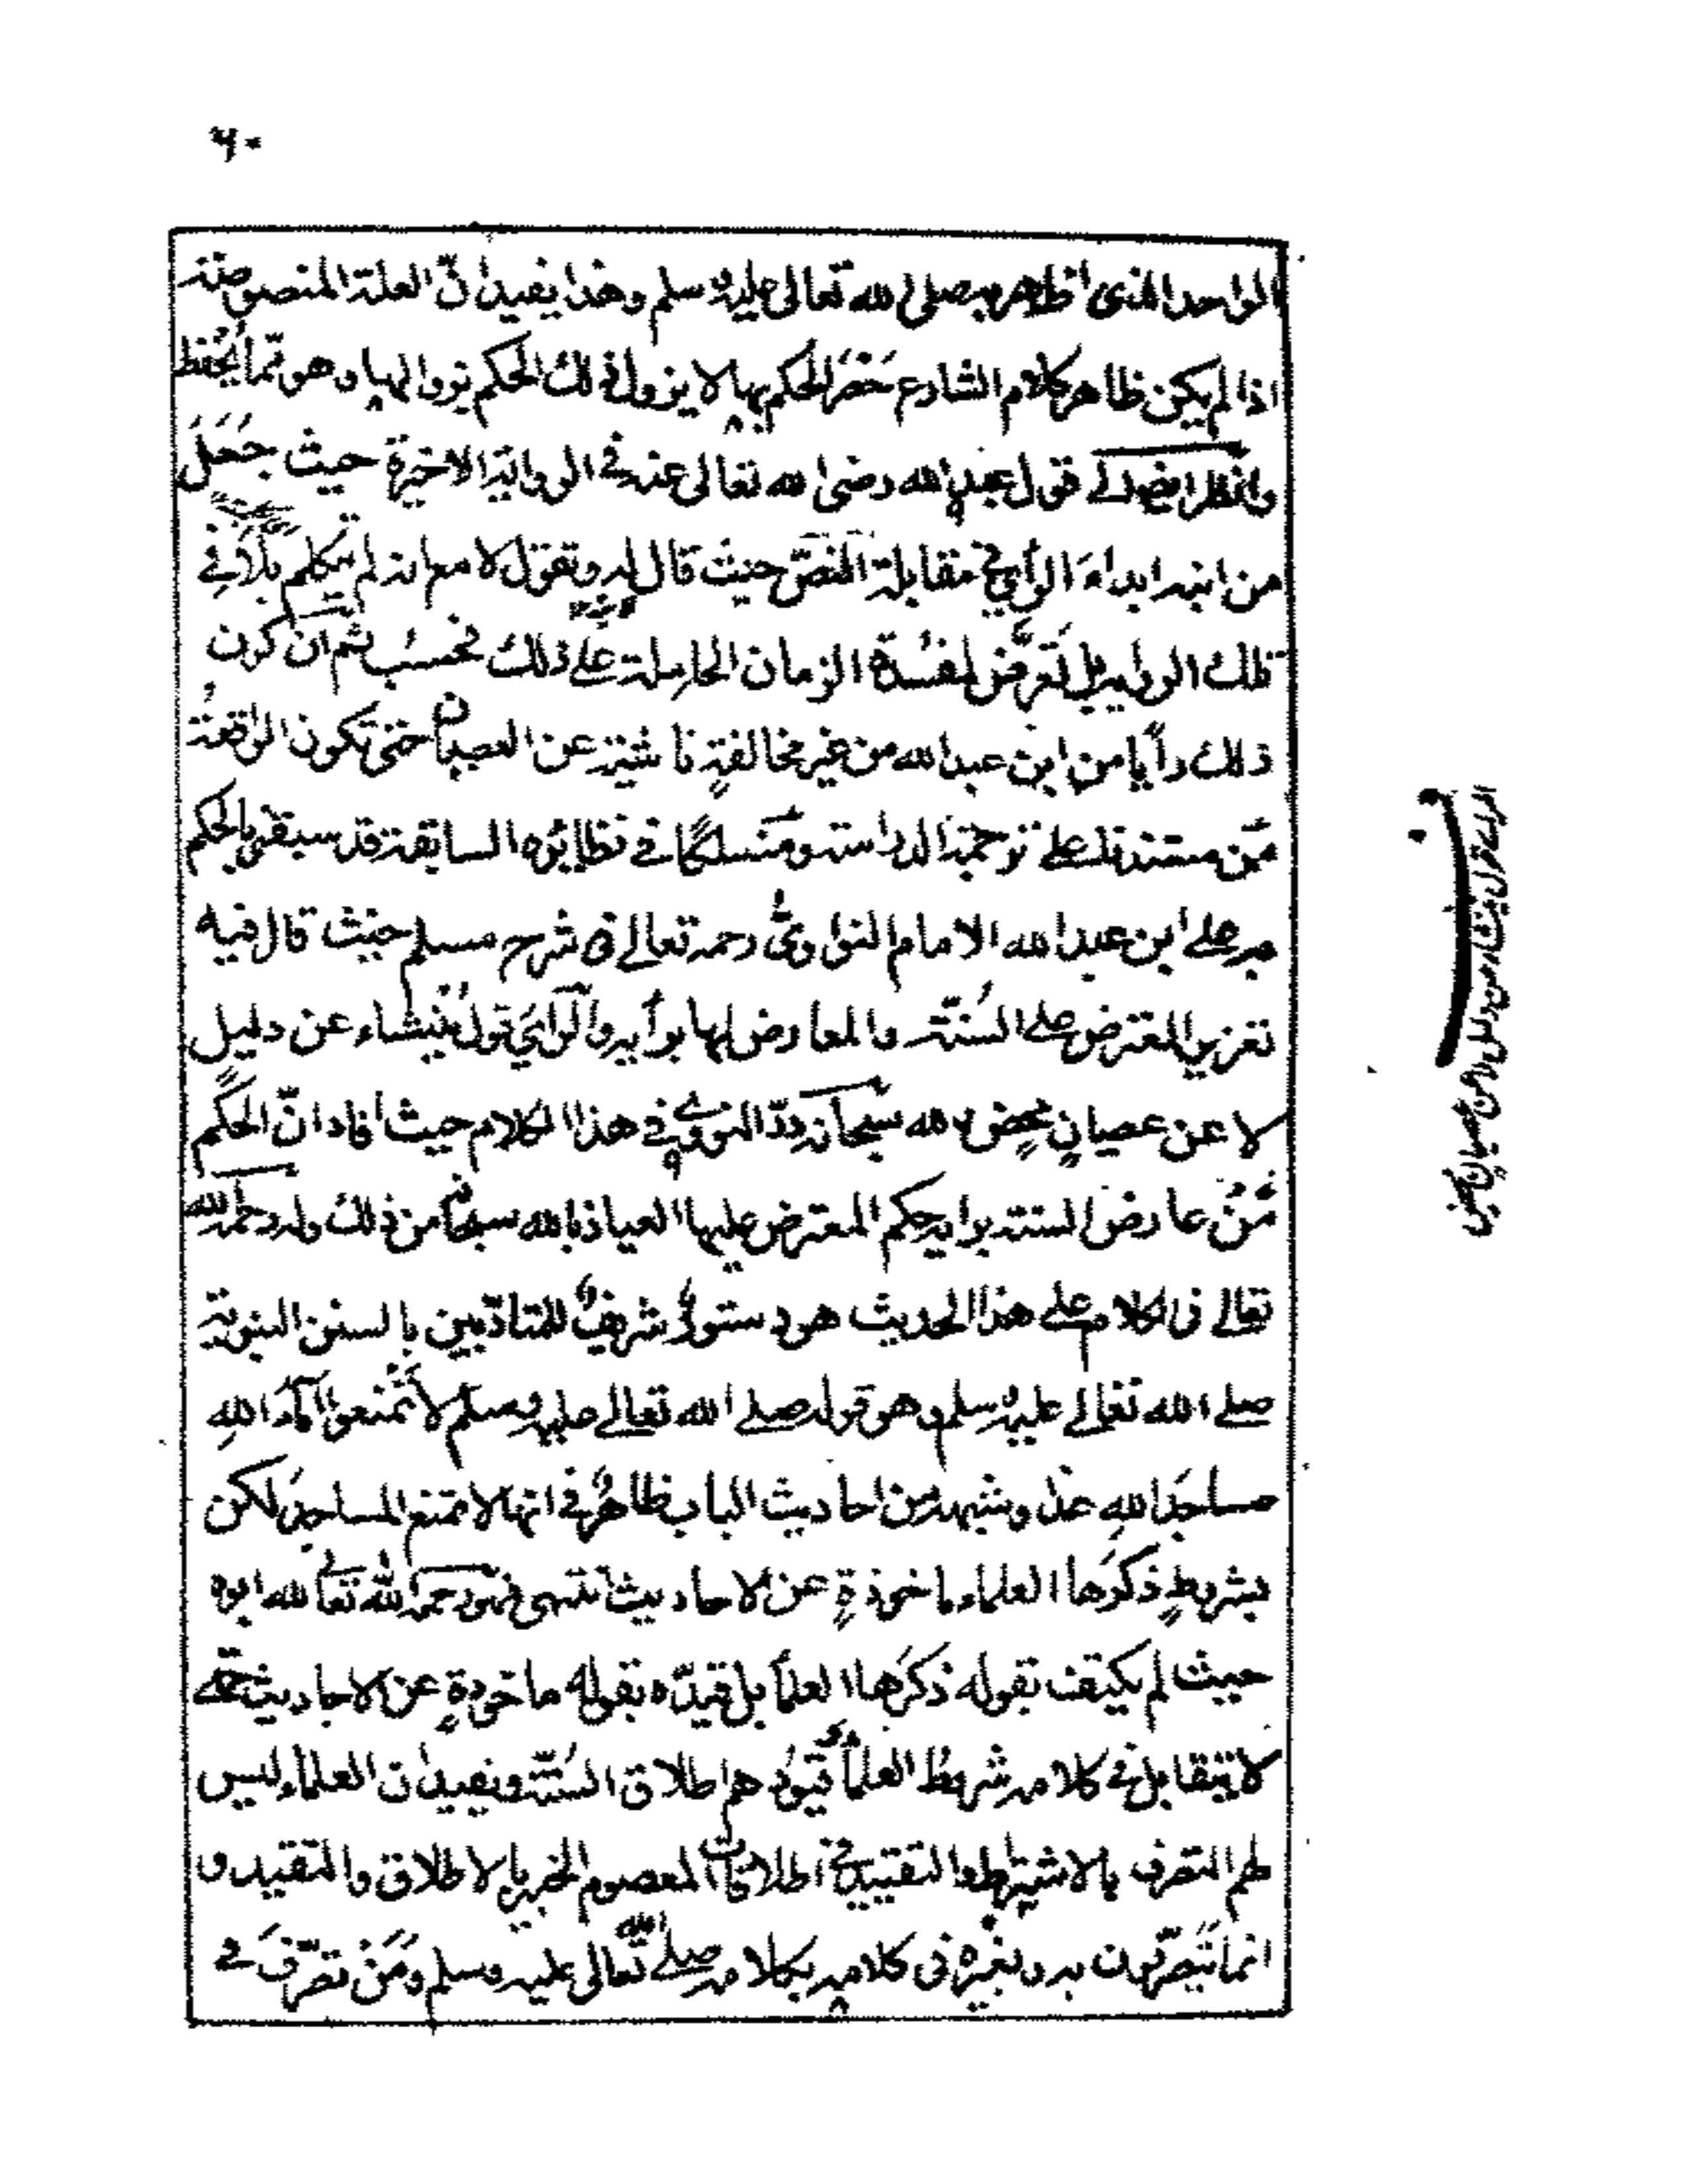 ٦٠
الواحد الذى اظهره صلى الله تعالى عليه وسلم وهذا يفيد ان العلة المنصوصة
اذا لم يكن ظاهر كلام الشارع حَصْرَ الحكم بها لا يزول ذلك الحكم بزوالها وهو ممّا يُحْفَظ
وانظر ايضا الى قول عبد الله رضى الله تعالى عنه فى الرواية الاخيرة حيث جَعَلَ
من ابنه ابداءَ الرأي في مقابلة النصّ حيث قال له وتقول لا مع انه لم يتكلم بلا في
تلك الرواية بل تَعرَّض لمفسدة الزمان الحاملة على ذلك فحسب ثم ان كون
ذلك رأيا من ابن عبد الله من غير مخالفةٍ ناشئة عن العصيان حتى تكون الواقعة
من مستندنا على ترجمة الدراسة ومنسلكًا في نظائره السابقة قد سبقنى بالحكم
به على ابن عبد الله الامام النواوىُّ رحمه تعالى فى شرح مسلم حيث قال فيه
تعزير المعترض على السُنّة والمعارض لها برأيه والرّأيُ قولٌ ينشاء عن دليل
لا عن عصيانٍ محضٍ لله سبحانه درّ النووى في هذا الكلام حيث افاد انّ الحكم
مَنْ عارض السنة برايه حكم المعترض عليها العياذ بالله سبحانه من ذلك وله رحمه الله
تعالى فى الكلام على هذا الحديث هو دستورٌ شريفٌ للمتادّبين بالسنن النبوية
صلى الله تعالى عليه وسلم وهو قوله صلى الله تعالى عليه وسلم لا تَمْنعوا اِمَاءَ اللهِ
مساجدَ اللهِ هذا وشبهه من احاديث الباب ظاهرٌ في انها لا تمنع المساجدَ لكن
بشروطٍ ذكرَها العلماء ماخوذةٍ عن الاحاديث انتهى فهو رحمه الله تعالى لله ابوه
حيث لم يكتف بقوله ذكرَها العلماء بل قيّده بقوله ماخوذةٍ عن الاحاديث حتى
لا يتقابل في كلامه شروطُ العلماء وقيودُهم اطلاق السُنّة ويفيد ان العلماء ليس
لهم التصرف بالاشتراط والتقييد في اطلاقات المعصوم الخبير بالاطلاق والتقييد و
انما يَتَصرّفون به وبغيره فى كلامه بكلامه صلى الله تعالى عليه وسلم ومَنْ تصرّفَ في
الراى قول ينشاء عن دليل لا عن عصيان محض